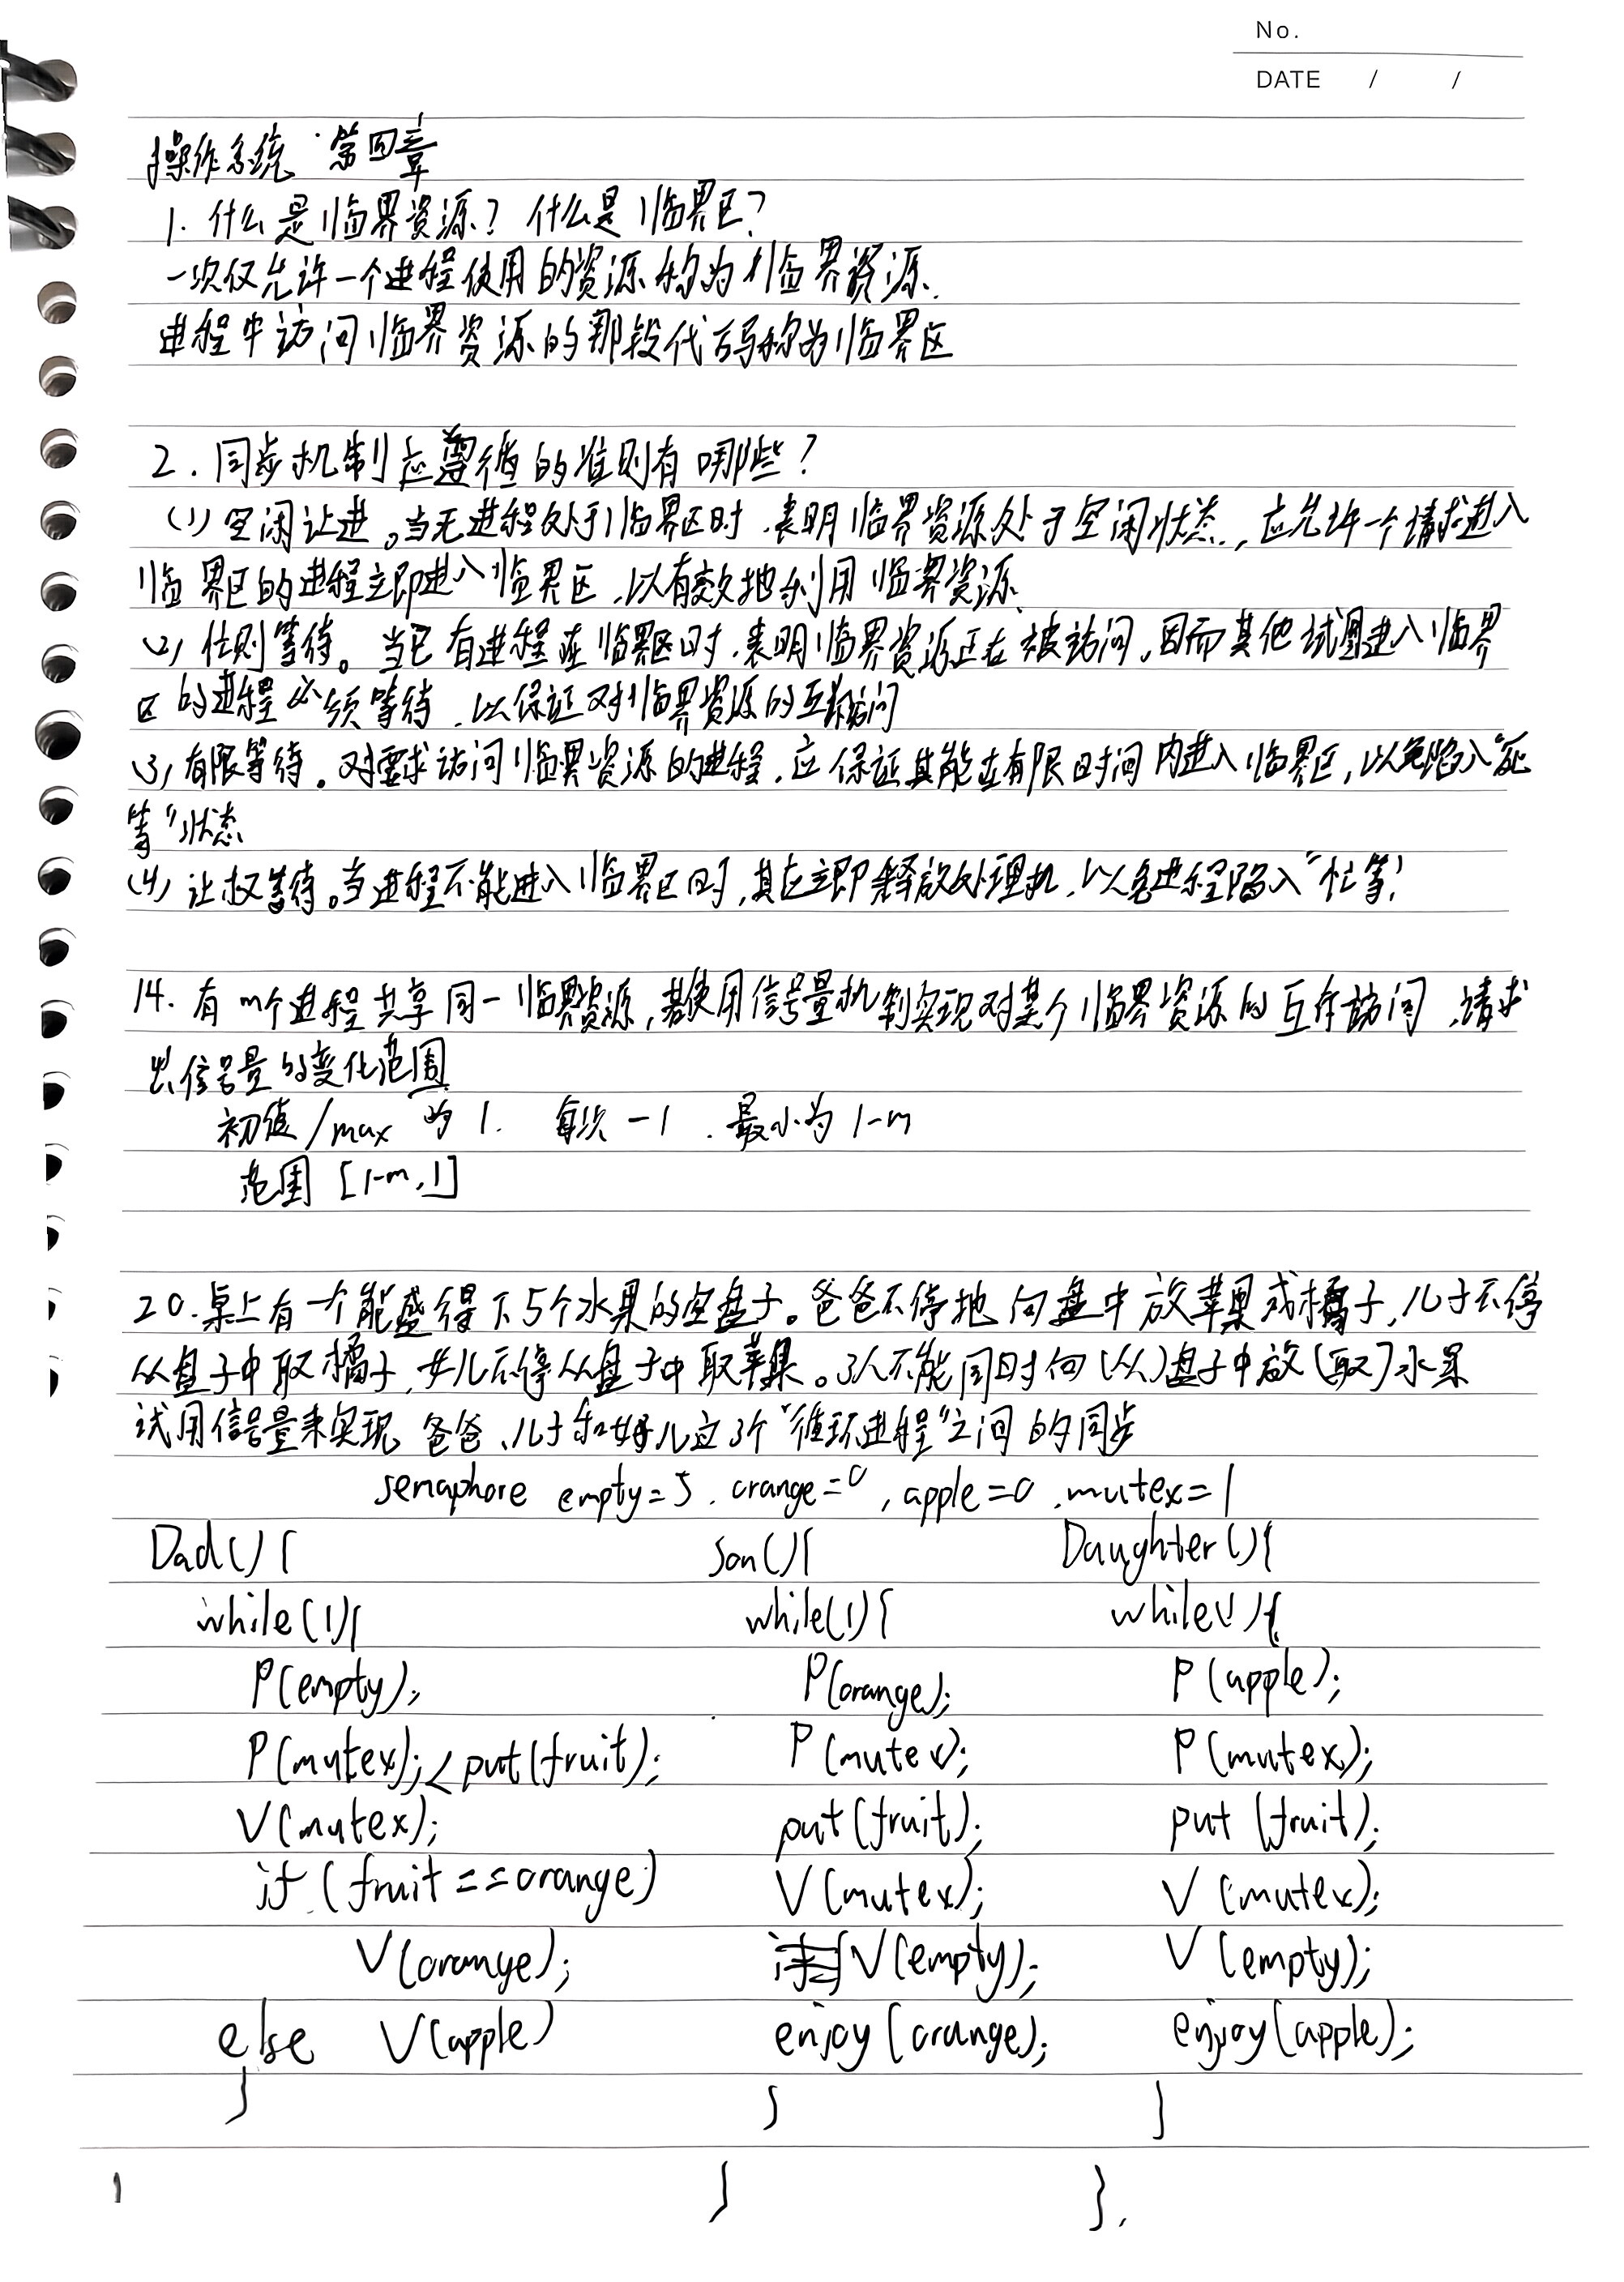 No.
DATE / /
操作系统 第四章
1. 什么是临界资源？什么是临界区？
一次仅允许一个进程使用的资源称为临界资源.
进程中访问临界资源的那段代码称为临界区
2. 同步机制应遵循的准则有哪些？
(1) 空闲让进。当无进程处于临界区时，表明临界资源处于空闲状态，应允许一个请求进入
临界区的进程立即进入临界区，以有效地利用临界资源.
(2) 忙则等待。当已有进程在临界区时，表明临界资源正在被访问，因而其他试图进入临界
区的进程必须等待，以保证对临界资源的互斥访问
(3) 有限等待。对要求访问临界资源的进程，应保证其能在有限时间内进入临界区，以免陷入“死
等”状态
(4) 让权等待。当进程不能进入临界区时，其应立即释放处理机，以免进程陷入“忙等”
14. 有m个进程共享同一临界资源，若使用信号量机制实现对某个临界资源的互斥访问，请求
出信号量的变化范围
初值/max 为 1. 每次 -1. 最小为 1-m
范围 [1-m,1]
20. 桌上有一个能盛得下5个水果的空盘子。爸爸不停地向盘中放苹果或橘子，儿子不停
从盘子中取橘子，女儿不停从盘子中取苹果。3人不能同时向(从)盘子中放(取)水果
试用信号量来实现 爸爸、儿子和女儿这3个“循环进程”之间的同步
semaphore empty=5. orange=0, apple=0. mutex=1
Dad(){ Son(){ Daughter(){
while(1){ while(1){ while(1){
P(empty); P(orange); P(apple);
P(mutex); < put(fruit); P(mutex); P(mutex);
V(mutex); put(fruit); put(fruit);
if (fruit==orange) V(mutex); V(mutex);
V(orange); V(empty); V(empty);
else V(apple) enjoy(orange); enjoy(apple);
} } }
} } }.